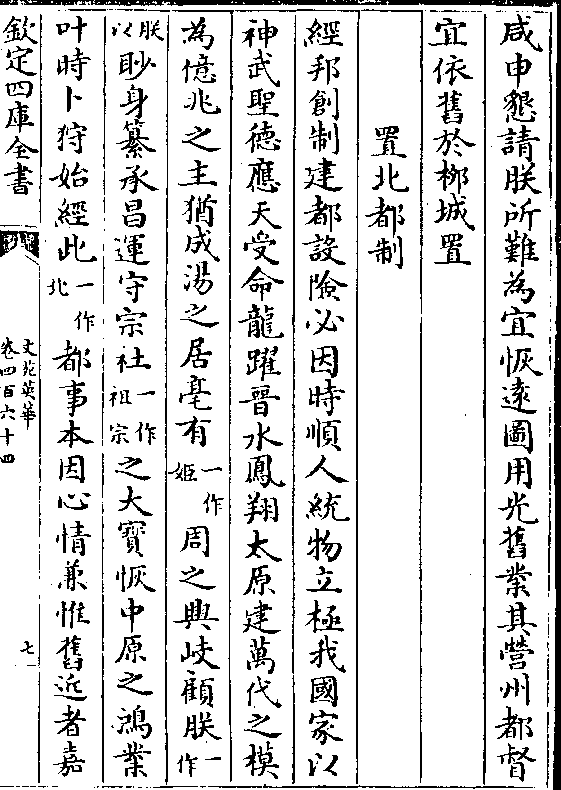 咸申懇請朕所難為宜恢遠圖用光舊業其營州都督
宜依舊於栁城置
置北都制
經邦創制建都設險必因時順人統物立極我國家以
神武聖徳應天受命龍躍晉水鳳翔太原建萬代之模
為億兆之主猶成湯之居亳有一作姬周之興岐顧朕一作
朕以眇身纂承昌運守宗社一作祖宗之大寳恢中原之鴻業
叶時卜狩始經此一作北都事本因心情兼惟舊近者嘉
欽定四庫全書
文苑英華
卷四百六十四
七